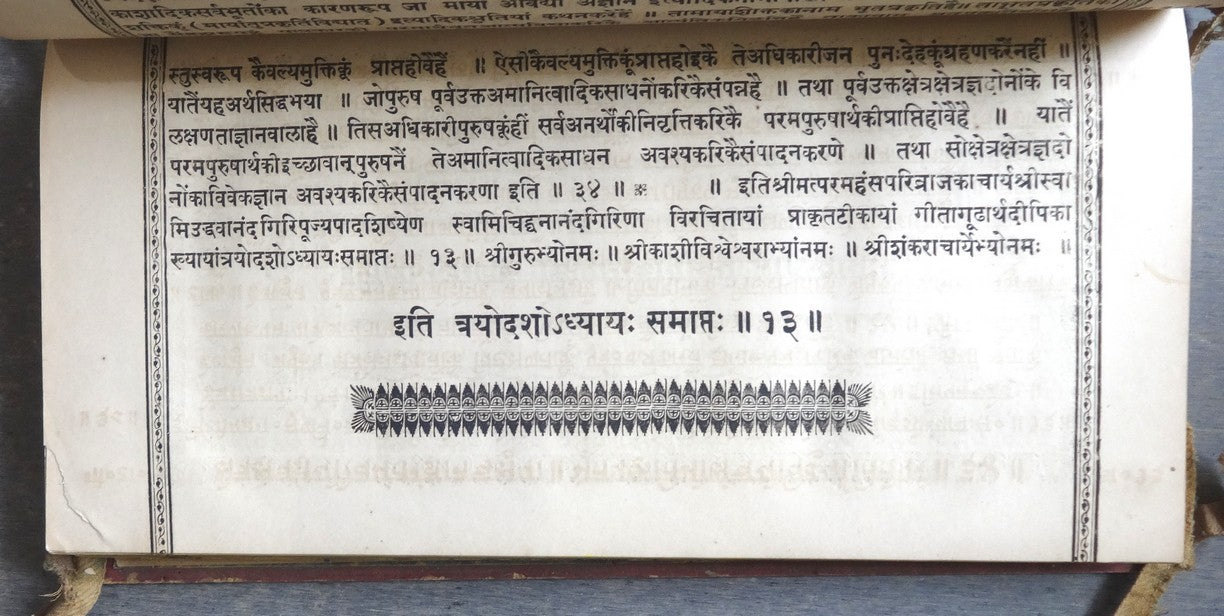 काशादिकसर्वभूतोंका कारणरूप जो माया अविद्या अज्ञान
स्तुस्वरूप कैवल्यमुक्तिकूं प्राप्तहोवैहैं ॥ ऐसीकैवल्यमुक्तिकूंप्राप्तहोइकै तेअधिकारीजन पुनःदेहकूंग्रहणकरैंनहीं ॥
यातैंयहअर्थसिद्धभया ॥ जोपुरुष पूर्वउक्तअमानित्वादिकसाधनोंकरिकैसंपन्नहै ॥ तथा पूर्वउक्तक्षेत्रक्षेत्रज्ञदोनोंके वि
लक्षणताज्ञानवालाहै ॥ तिसअधिकारीपुरुषकूंहीं सर्वअनर्थोंकीनिवृत्तिकरिकै परमपुरुषार्थकीप्राप्तिहोवैहै ॥ यातैं
परमपुरुषार्थकीइच्छावान्पुरुषनैं तेअमानित्वादिकसाधन अवश्यकरिकैसंपादनकरणे ॥ तथा सोक्षेत्रक्षेत्रज्ञदो
नोंकाविवेकज्ञान अवश्यकरिकैसंपादनकरणा इति ॥ ३४ ॥ ॥ इतिश्रीमत्परमहंसपरिव्राजकाचार्यश्रीस्वा
मिउद्धवानंदगिरिपूज्यपादशिष्येण स्वामिचिद्घनानंदगिरिणा विरचितायां प्राकृतटीकायां गीतागूढार्थदीपिका
ख्यायांत्रयोदशोऽध्यायःसमाप्तः ॥ १३ ॥ श्रीगुरुभ्योनमः ॥ श्रीकाशीविश्वेश्वराभ्यांनमः ॥ श्रीशंकराचार्येभ्योनमः ॥
इति त्रयोदशोऽध्यायः समाप्तः ॥ १३ ॥